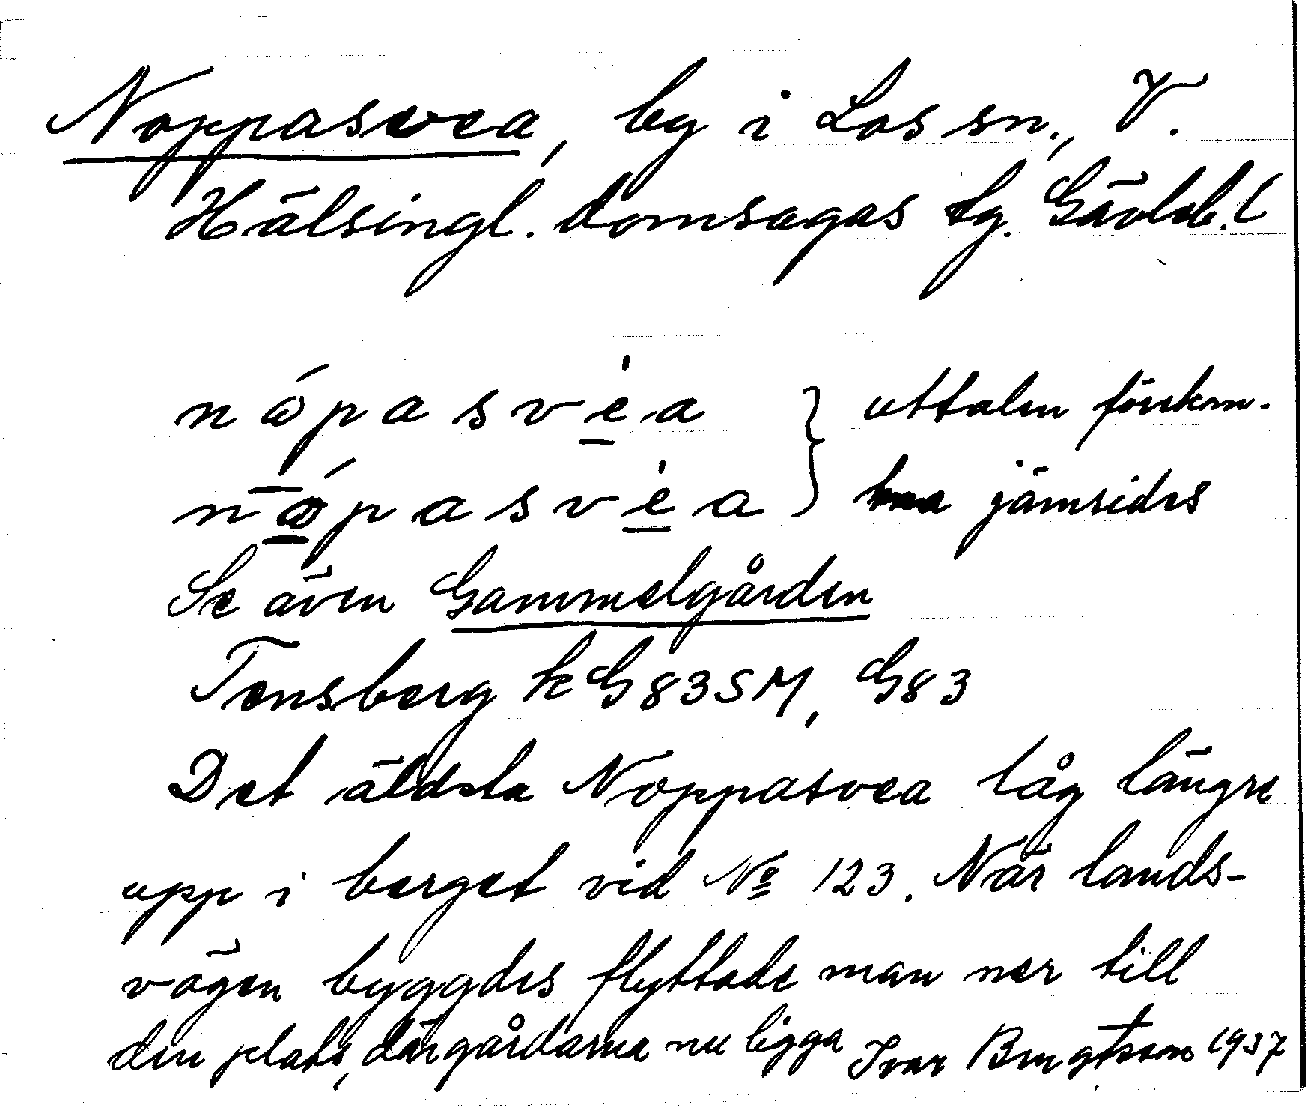 Noppasvea, by i Los sn., V.
Hälsingl. domsagas tg. Gävleb. l
nópasvėa } uttalen förekom-
nópasvėa } ma jämsides
Se även Gammelgården
Tensberg k G83SM, G83
Det äldsta Noppasvea låg längre
upp i berget vid No 123. När lands-
vägen byggdes flyttade man ner till
den plats, där gårdarna nu ligga Ivar Bengtsson 1937